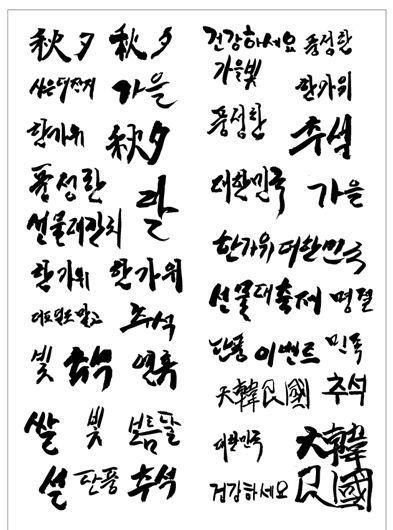 秋夕 秋夕
사은대잔치 가을
한가위 秋夕
풍성한 달
선물대잔치
한가위 한가위
더도말도말고 추석
빛 추석 연휴
쌀 빛 보름달
설 단풍 추석
건강하세요 풍성한
가을빛 한가위
풍성한 추석
대한민국 가을
한가위 대한민국
선물대축제 명절
단풍 이벤트 민족
大韓民國 추석
대한민국 大韓民國
건강하세요